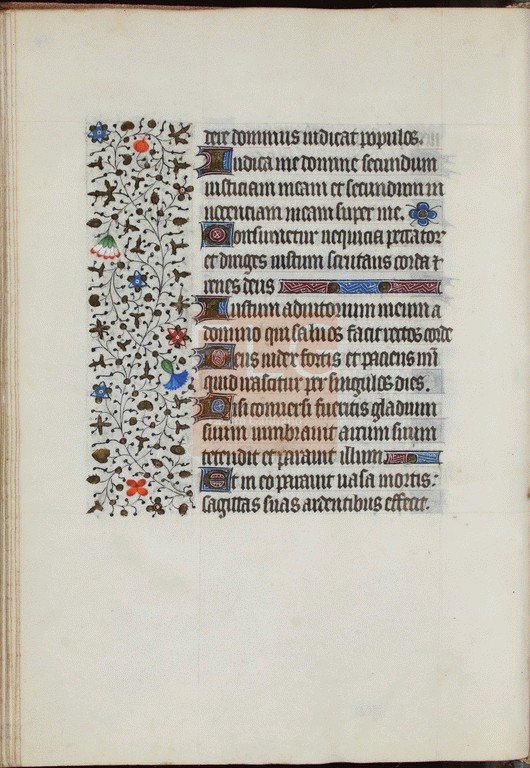 dere dominus iudicat populos.
Iudica me domine secundum
iusticiam meam et secundum in
nocentiam meam super me.
Consumetur nequicia peccator
et diriges iustum scrutans corda et
renes deus
Iustum adiutorium meum a
domino qui saluos facit rectos corde
Deus iudex fortis et paciens nū
quid irascitur per singulos dies.
Nisi conuersi fueritis gladium
suum uimbrauit arcum suum
tetendit et parauit illum.
Et in eo parauit uasa mortis:
sagittas suas ardentibus effecit.